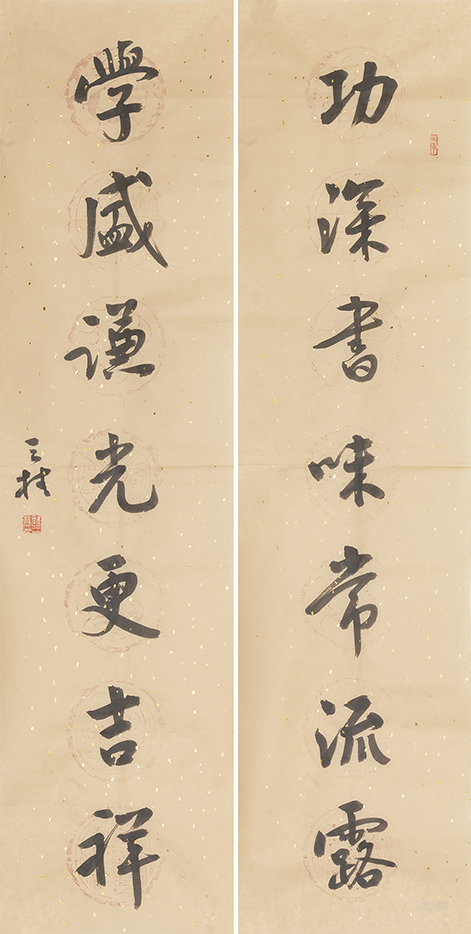 功深書味常流露
學盛謙光更吉祥